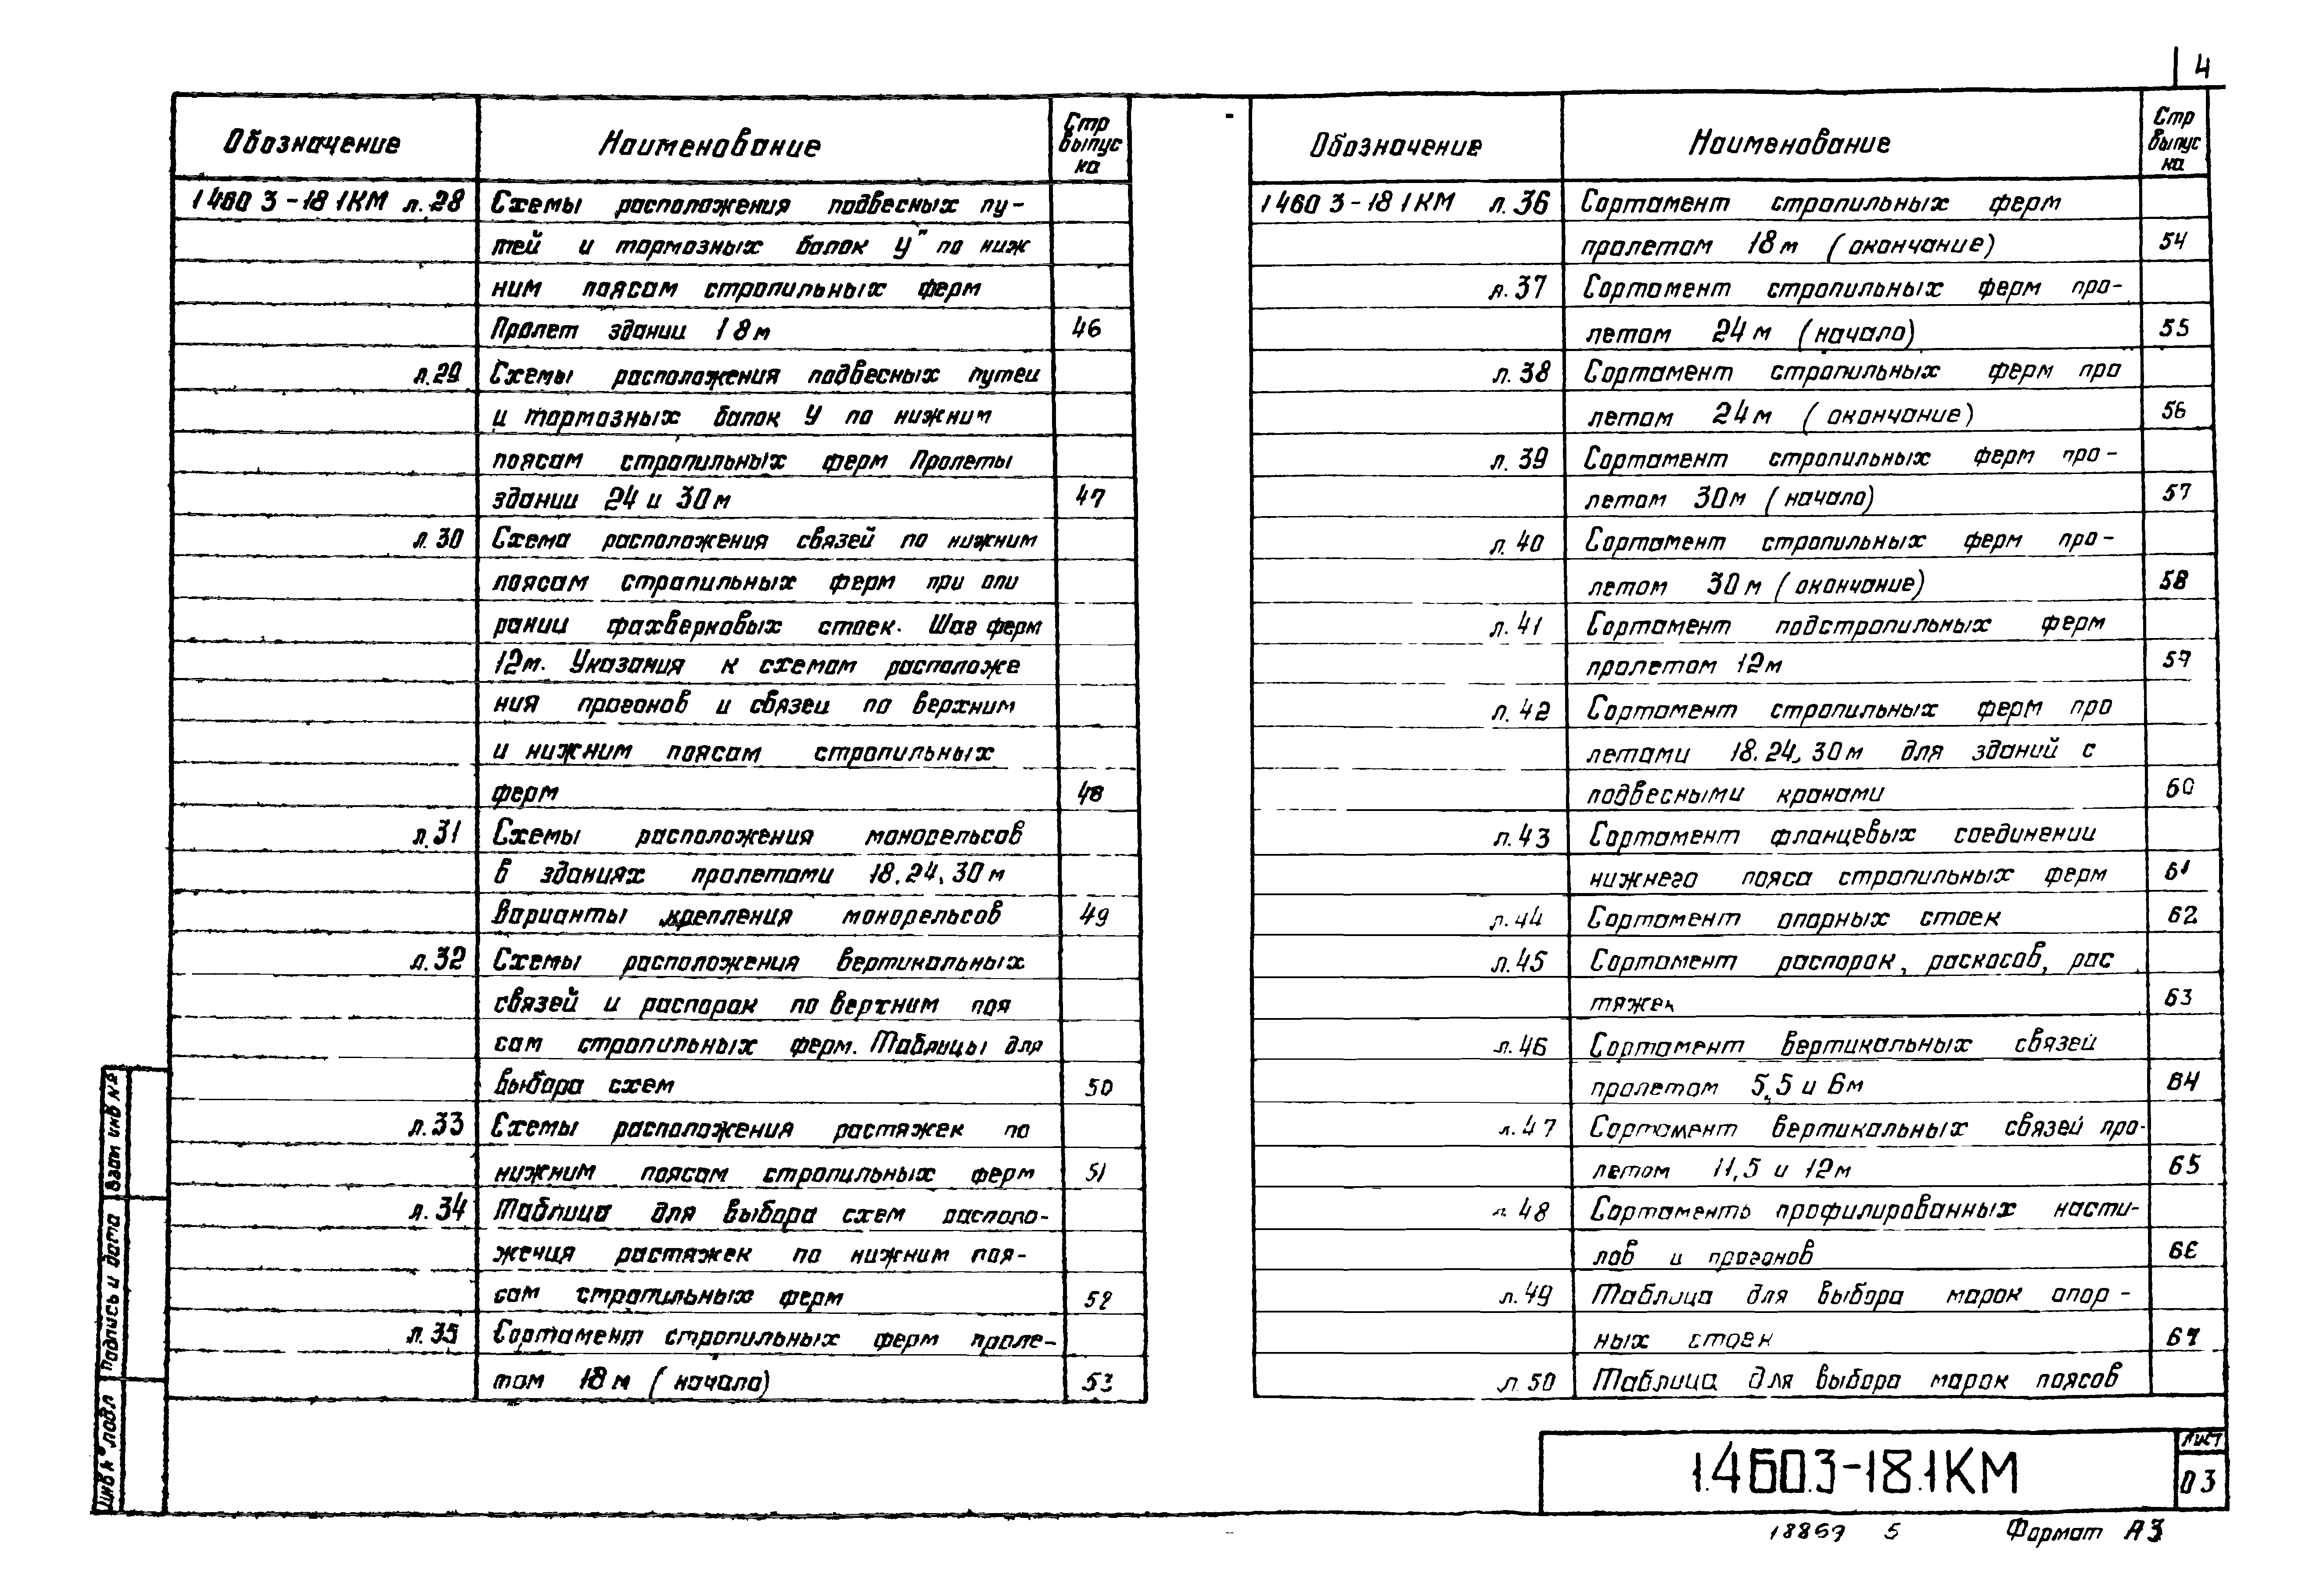 4
Обозначение Наименование Стр выпус ка
1 460 3-18 1КМ л.28 Схемы расположения подвесных пу-
тей и тормозных балок У" по ниж
ним поясам стропильных ферм
Пролет здании 18м 46
л.29 Схемы расположения подвесных путеи
и тормозных балок У по нижним
поясам стропильных ферм Пролеты
здании 24 и 30м 47
л.30 Схема расположения связей по нижним
поясам стропильных ферм при опи
рании фахверковых стоек. Шаг ферм
12м. Указания к схемам расположе
ния прогонов и связеи по верхним
и нижним поясам стропильных
ферм 48
л.31 Схемы расположения монорельсов
в зданиях пролетами 18.24,30м
Варианты крепления монорельсов 49
л.32 Схемы расположения вертикальных
связей и распорок по верхним поя
сам стропильных ферм. Таблицы для
выбора схем 50
л.33 Схемы расположения растяжек по
нижним поясам стропильных ферм 51
л.34 Таблица для выбора схем располо-
жения растяжек по нижним поя-
сам стропильных ферм 52
л.35 Сортамент стропильных ферм проле-
том 18м (начало) 53
Обозначение Наименование Стр выпус ка
1 460 3-18 1КМ л.36 Сортамент стропильных ферм
пролетом 18м (окончание) 54
л.37 Сортамент стропильных ферм про-
летом 24м (начало) 55
л.38 Сортамент стропильных ферм про
летом 24м (окончание) 56
л.39 Сортамент стропильных ферм про-
летом 30м (начало) 57
л.40 Сортамент стропильных ферм про-
летом 30м (окончание) 58
л.41 Сортамент подстропильных ферм
пролетом 12м 59
л.42 Сортамент стропильных ферм про
летами 18.24,30м для зданий с
подвесными кранами 60
л.43 Сортамент фланцевых соединении
нижнего пояса стропильных ферм 61
л.44 Сортамент опорных стоек 62
л.45 Сортамент распорок, раскосов, рас
тяжек 63
л.46 Сортамент вертикальных связей
пролетом 5,5 и 6м 64
л.47 Сортамент вертикальных связей про-
летом 11,5 и 12м 65
л.48 Сортаменты профилированных насти-
лов и прогонов 66
л.49 Таблица для выбора марок опор-
ных стоек 67
л.50 Таблица для выбора марок поясов
Инв № подл Подпись и дата Взам инв №
1.460.3-18.1КМ
Лист
03
18869 5 Формат А3